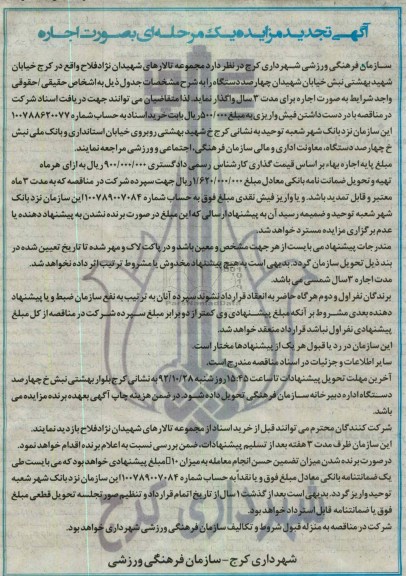 آگهی تجدید مزایده یک مرحله ای بصورت اجاره
سازمان فرهنگی ورزشی شهرداری کرج در نظر دارد مجموعه تالارهای شهیدان نژاد فلاح واقع در کرج خیابان
شهید بهشتی نبش خیابان شهیدان چهارصد دستگاه را به شرح مشخصات جدول ذیل به اشخاص حقیقی / حقوقی
واجد شرایط به صورت اجاره برای مدت ۳ سال واگذار نماید. لذا متقاضیان می توانند جهت دریافت اسناد شرکت
در مناقصه با در دست داشتن فیش واریزی به مبلغ ۵۰۰/۰۰۰ ریال بابت خرید اسناد به حساب شماره ۱۰۰۷۸۸۶۲۰۰۷۷
این سازمان نزد بانک شهر شعبه توحید به نشانی کرج خ شهید بهشتی روبروی خیابان استانداری و بانک ملی نبش
خ چهارصد دستگاه، معاونت اداری و مالی سازمان فرهنگی، اجتماعی و ورزشی مراجعه نمایند.
مبلغ پایه اجاره بهاء بر اساس قیمت گذاری کارشناس رسمی دادگستری ۹۰۰/۰۰۰/۰۰۰ ریال به ازای هر ماه
تهیه و تحویل ضمانت نامه بانکی معادل مبلغ ۱/۶۲۰/۰۰۰/۰۰۰ ریال جهت سپرده شرکت در مناقصه که به مدت ۳ ماه
معتبر و قابل تمدید باشد. و یا واریز فیش نقدی مبلغ فوق به حساب شماره ۱۰۰۷۸۹۰۰۷۰۸۴ این سازمان نزد بانک
شهر شعبه توحید و ضمیمه رسید آن به پیشنهاد ارسالی که این مبلغ در صورت برنده نشدن به پیشنهاد دهنده یا
عدم برگزاری مزایده مسترد خواهد شد.
مندرجات پیشنهاد می بایست از هر جهت مشخص و معین باشد و در پاکت لاک و مهر شده تا تاریخ تعیین شده در
بند ذیل تحویل سازمان گردد. بدیهی است به هیچ پیشنهاد مخدوش یا مشروط ترتیب اثر داده نخواهد شد.
مدت اجاره ۳ سال شمسی می باشد.
برندگان نفر اول و دوم هرگاه حاضر به انعقاد قرارداد نشوند سپرده آنان به ترتیب به نفع سازمان ضبط و یا پیشنهاد
دهنده بعدی مشروط بر آنکه مبلغ پیشنهادی وی کمتر از دو برابر مبلغ سپرده شرکت در مناقصه از کل مبلغ
پیشنهادی نفر اول نباشد قرارداد منعقد خواهد شد.
این سازمان در رد یا قبول هر یک از پیشنهادها مختار است.
سایر اطلاعات و جزئیات در اسناد مناقصه مندرج است.
آخرین مهلت تحویل پیشنهادات تا ساعت ۱۵:۴۵ روز شنبه ۹۲/۱۰/۲۸ به نشانی کرج بلوار بهشتی نبش خ چهارصد
دستگاه اداره دبیرخانه سازمان فرهنگی تحویل داده شود. در ضمن هزینه چاپ آگهی بعهده برنده مزایده می
باشد.
شرکت کنندگان محترم می توانند قبل از خرید اسناد از مجموعه تالارهای شهیدان نژاد فلاح بازدید نمایند.
این سازمان ظرف مدت ۳ هفته بعد از تسلیم پیشنهادات، ضمن بررسی نسبت به اعلام برنده اقدام خواهد نمود.
در صورت برنده شدن میزان تضمین حسن انجام معامله به میزان ۱۰٪ مبلغ پیشنهادی خواهد بود که می بایست طی
یک ضمانتنامه بانکی معادل مبلغ فوق و یا نقداً به حساب شماره ۱۰۰۷۸۹۰۰۷۰۸۴ این سازمان نزد بانک شهر شعبه
توحید واریز گردد. بدیهی است بعد از گذشت ۱ سال از تاریخ اتمام قرارداد و تنظیم صورتجلسه تحویل قطعی مبلغ
فوق یا ضمانتنامه قابل استرداد خواهد بود.
شرکت در مناقصه به منزله قبول شروط و تکالیف سازمان فرهنگی ورزشی شهرداری خواهد بود.
شهرداری کرج - سازمان فرهنگی ورزشی